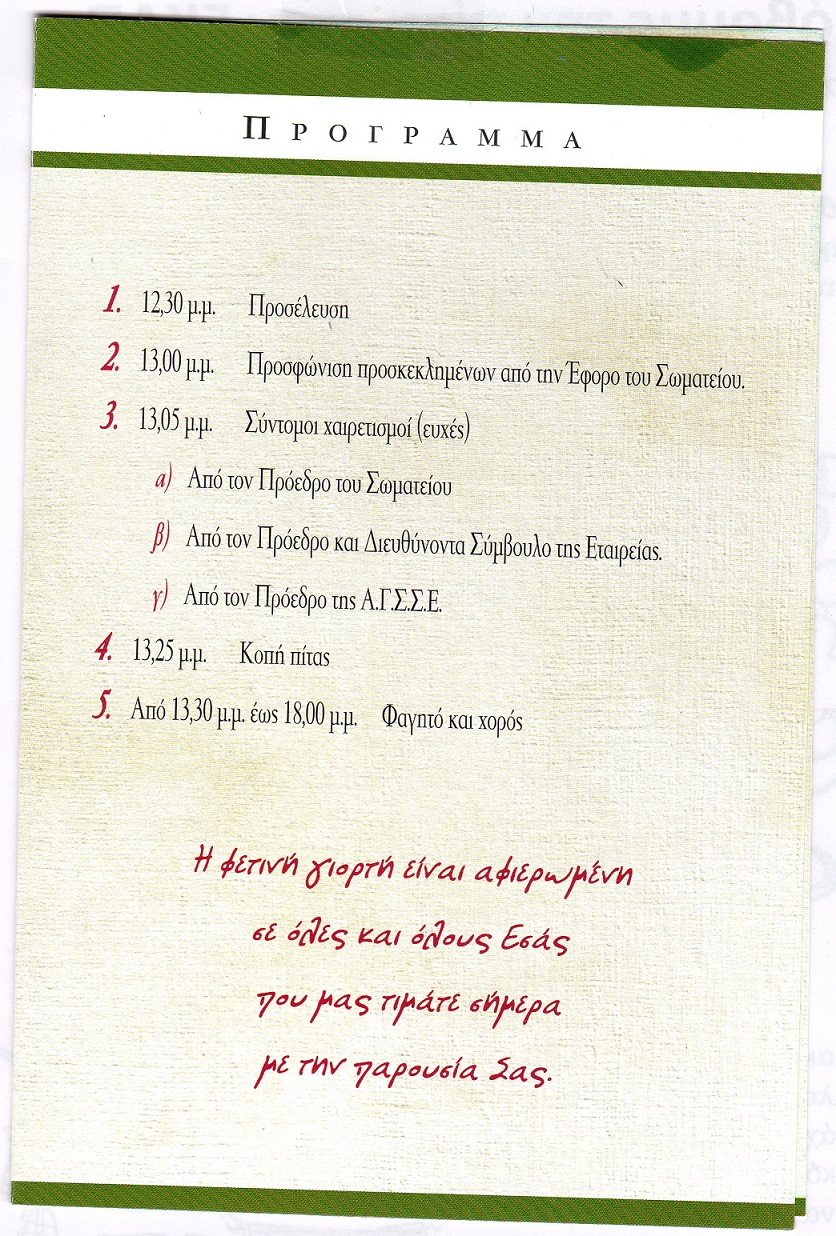 ΠΡΟΓΡΑΜΜΑ
1. 12,30 μ.μ. Προσέλευση
2. 13,00 μ.μ. Προσφώνιση προσκεκλημένων από την Έφορο του Σωματείου.
3. 13,05 μ.μ. Σύντομοι χαιρετισμοί (ευχές)
α) Από τον Πρόεδρο του Σωματείου
β) Από τον Πρόεδρο και Διευθύνοντα Σύμβουλο της Εταιρείας.
γ) Από τον Πρόεδρο της Α.Γ.Σ.Σ.Ε.
4. 13,25 μ.μ. Κοπή πίτας
5. Από 13,30 μ.μ. έως 18,00 μ.μ. Φαγητό και χορός
Η φετινή γιορτή είναι αφιερωμένη
σε όλες και όλους Εσάς
που μας τιμάτε σήμερα
με την παρουσία Σας.